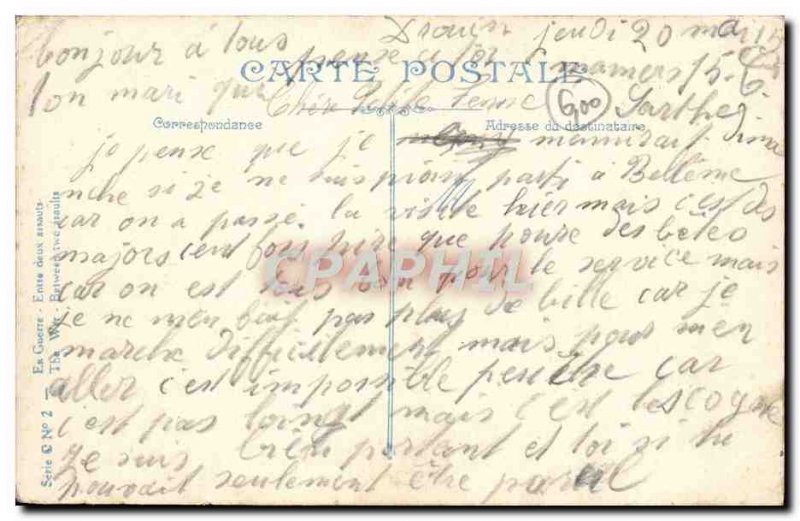 jeudi 20 mai 15
bonjour à tous pense a toi Mamers 15-6-
ton mari qui
CARTE POSTALE
Chère Petite Femme 600 Sarthe
Correspondance
Adresse du destinataire
je pense que je
nche si je ne suis point parti à Bellême
car on a passé la visite hier mais c'est des
majors c'est bois pire que pour des bêtes
car on est tous bon pour le service mais
je ne m'en fait pas plus de bille car je
marche difficilement mais pour m'en
aller c'est impossible peut être car
c'est pas loingt mais c'est les cogne
je suis bien portant et toi si tu
pouvait seulement être pareil
Serie C No 2 — En Guerre - Entre deux assauts
The War - Between two assaults
CPAPHIL